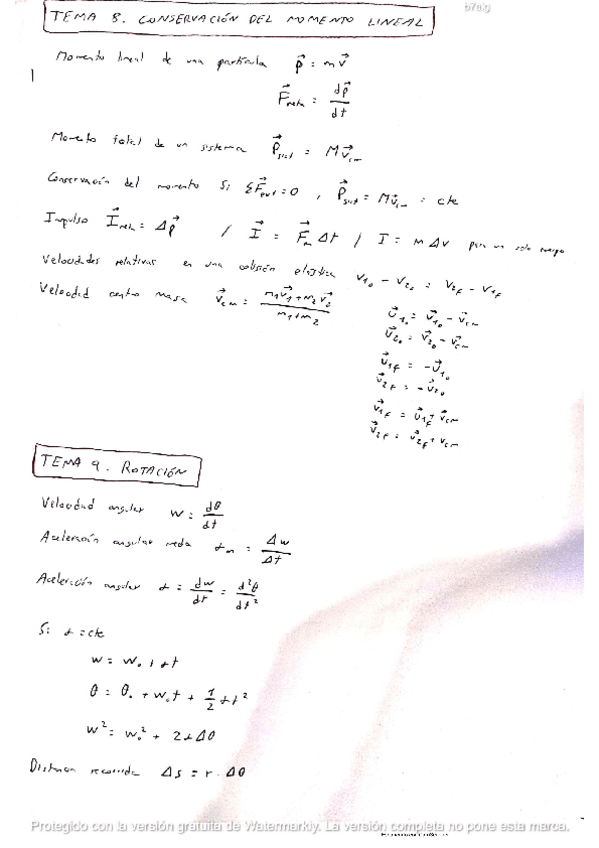 b7aig
TEMA 8. CONSERVACIÓN DEL MOMENTO LINEAL
Momento lineal de una partícula p⃗ = mv⃗
F⃗neta = dp⃗/dt
Momento total de un sistema P⃗sist = Mv⃗cm
Conservación del momento Si ΣF⃗ext = 0, P⃗sist = Mv⃗cm = cte
Impulso I⃗neta = Δp⃗ / I⃗ = F⃗m Δt / I = m Δv para un solo cuerpo
Velocidades relativas en una colisión elástica v1₀ - v2₀ = v2f - v1f
Velocidad centro masa v⃗cm = (m1v⃗1 + m2v⃗2)/(m1+m2)
u⃗1₀ = v⃗1₀ - v⃗cm
u⃗2₀ = v⃗2₀ - v⃗cm
u⃗1f = -u⃗1₀
u⃗2f = -u⃗2₀
v⃗1f = u⃗1f + v⃗cm
v⃗2f = u⃗2f + v⃗cm
TEMA 9. ROTACIÓN
Velocidad angular w = dθ/dt
Aceleración angular media αm = Δw/Δt
Aceleración angular α = dw/dt = d²θ/dt²
Si α = cte
w = w₀ + αt
θ = θ₀ + w₀t + 1/2 αt²
w² = w₀² + 2αΔθ
Distancia recorrida Δs = r · Δθ
Protegido con la versión gratuita de Watermarkly. La versión completa no pone esta marca.